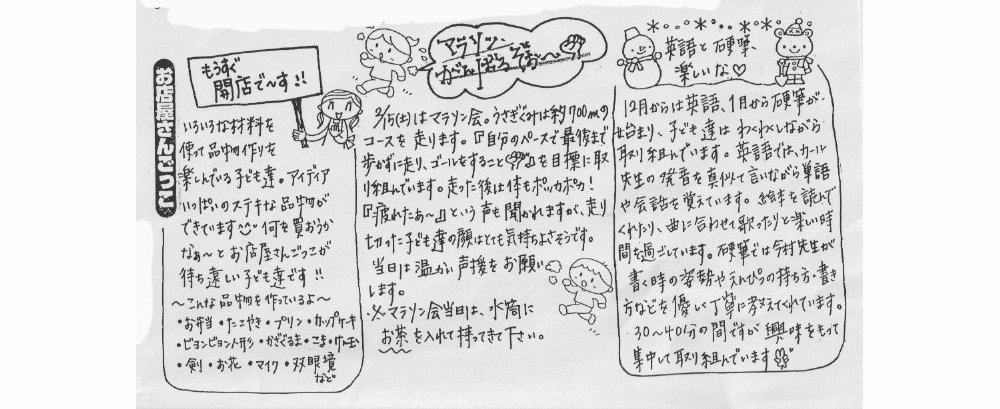 お店屋さんごっこ
もうすぐ
開店で〜す!!
いろいろな材料を
使って品物作りを
楽しんでいる子ども達。アイディア
いっぱいのステキな品物が
できています 何を買おうか
なぁ〜とお店屋さんごっこが
待ち遠しい子ども達です!!
〜こんな品物を作っているよ〜
・お弁当・たこやき・プリン・カップケーキ
・ピョンピョン人形・かざぐるま・こま・けん玉
・剣・お花・マイク・双眼鏡
など
マラソン
がんばるぞぉ〜
2/15(土)はマラソン会。うさぎぐみは約700mの
コースを走ります。『自分のペースで最後まで
歩かずに走り、ゴールをすること』を目標に取
り組んでいます。走った後は体もポッカポカ!
『疲れたぁ〜』という声も聞かれますが、走り
切った子ども達の顔はとても気持ちよさそうです。
当日は温かい声援をお願い
します。
※マラソン会当日は、水筒に
お茶を入れて持ってきて下さい。
英語と硬筆、
楽しいな♡
12月からは英語、1月から硬筆が
始まり、子ども達はわくわくしながら
取り組んでいます。英語では、カール
先生の発音を真似て言いながら単語
や会話を覚えています。絵本を読んで
くれたり、曲に合わせて歌ったりと楽しい時
間を過ごしています。硬筆では今村先生が
書く時の姿勢やえんぴつの持ち方・書き
方などを優しく丁寧に教えてくれています。
30〜40分の間ですが興味をもって
集中して取り組んでいます